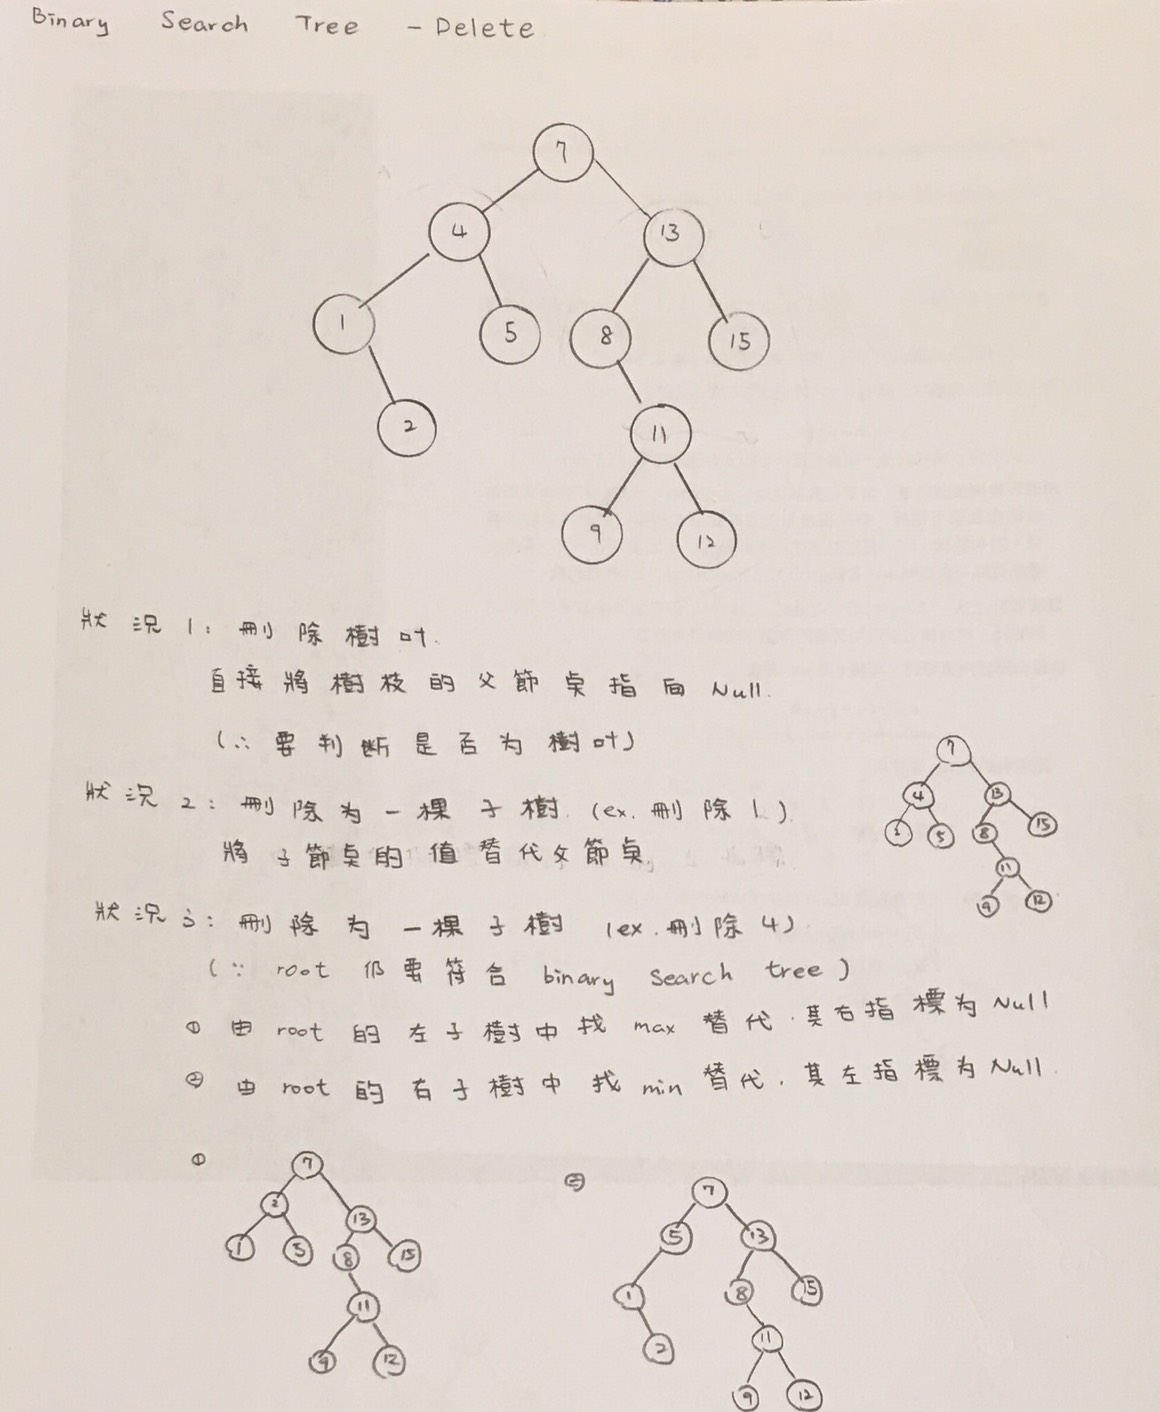 Binary Search Tree - Delete
7
4 13
1 5 8 15
2 11
9 12
狀況1: 刪除樹叶.
直接將樹枝的父節点指向 Null.
(∴ 要判斷是否为樹叶)
狀況2: 刪除为一棵子樹. (ex. 刪除1.)
將子節点的值替代父節点.
7
4 13
2 5 8 15
11
9 12
狀況3: 刪除为一棵子樹 (ex. 刪除4)
(∵ root 仍要符合 binary search tree)
① 由 root 的左子樹中找 max 替代. 其右指標为 Null
② 由 root 的右子樹中找 min 替代. 其左指標为 Null.
①
7
2 13
1 5 8 15
11
9 12
②
7
5 13
1 8 15
2 11
9 12